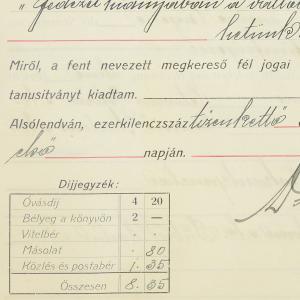 "Fedezet hiányában a váltó
letünk
Miről, a fent nevezett megkereső fél jogai
tanusitványt kiadtam.
Alsólendván, ezerkilenczszáz tizenkettő
első napján.
Díjjegyzék:
Óvásdíj 4 20
Bélyeg a könyvön 2 —
Vitelbér · ·
Másolat · 80
Közlés és postabér 1 · 35
Összesen 8 · 35